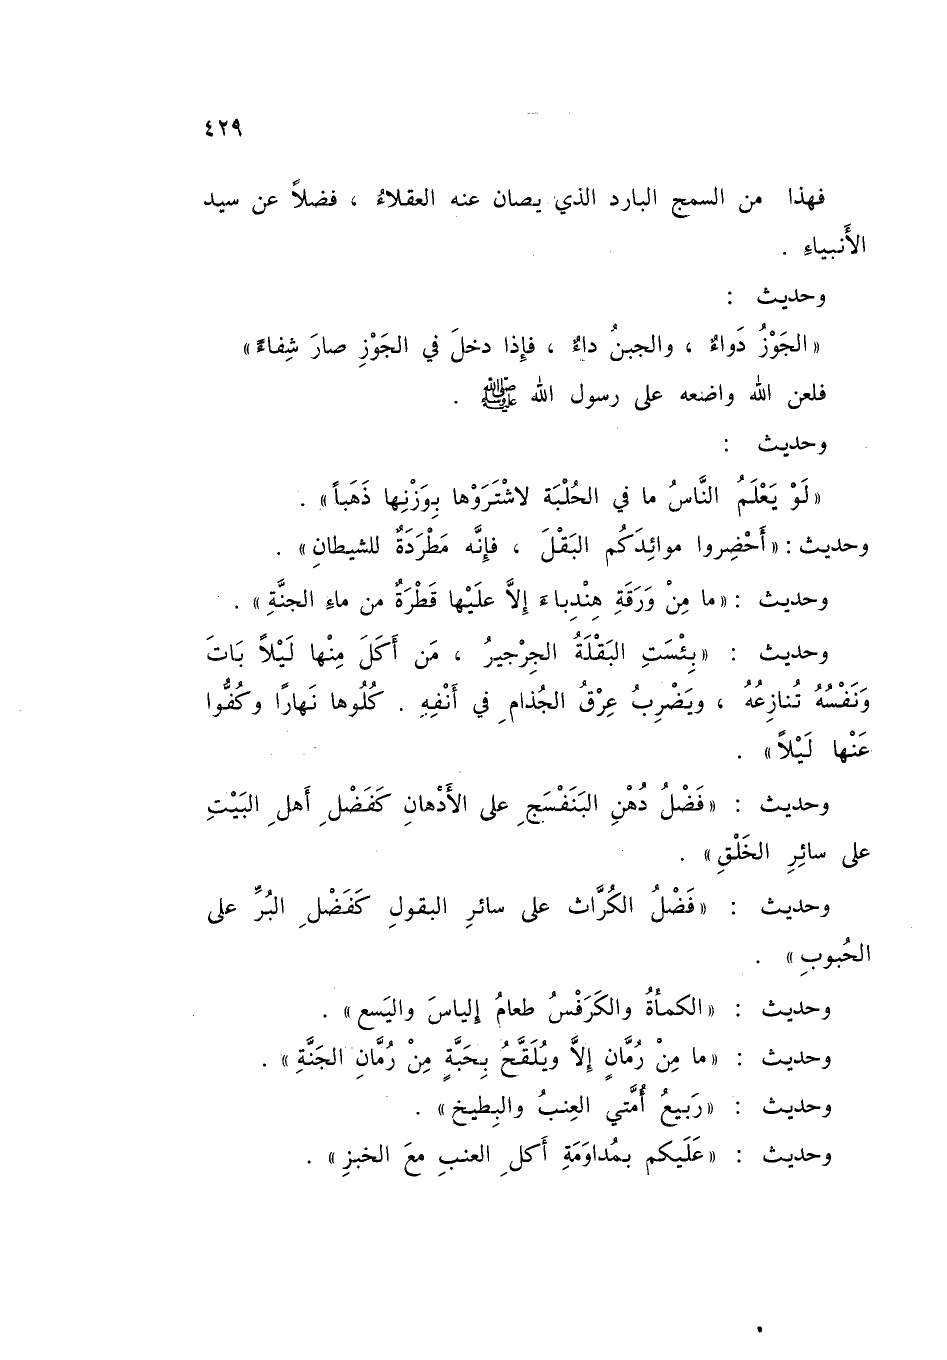 ٤٢٩
فهذا من السمج البارد الذي يصان عنه العقلاءُ ، فضلاً عن سيد
الأَنبياءِ .
وحديث :
«الجَوْزُ دَواءٌ ، والجبنُ داءٌ ، فإذا دخلَ في الجَوْزِ صارَ شِفاءً»
فلعن الله واضعه على رسول الله ﷺ .
وحديث :
«لَوْ يَعْلَمُ النَّاسُ ما في الحُلْبَة لاشْتَرَوْها بِوَزْنِها ذَهَباً» .
وحديث : «أَحْضِروا موائِدَكُم البَقْلَ ، فإنَّه مَطْرَدَةٌ للشيطانِ» .
وحديث : «ما مِنْ وَرَقَةِ هِنْدِباءَ إلاَّ علَيْها قَطْرَةٌ من ماءِ الجنَّةِ» .
وحديث : «بِئْسَتِ البَقْلَةُ الجِرْجيرُ ، مَن أَكَلَ مِنْها لَيْلاً بَاتَ
وَنَفْسُهُ تُنازِعُهُ ، ويَضْرِبُ عِرْقُ الجُذامِ في أَنْفِهِ . كُلُوها نَهارًا وكُفُّوا
عَنْها لَيْلاً» .
وحديث : «فَضْلُ دُهْنِ البَنَفْسَجِ على الأَدْهانِ كَفَضْلِ أهلِ البَيْتِ
على سائِرِ الخَلْقِ» .
وحديث : «فَضْلُ الكُرَّاث على سائرِ البقولِ كَفَضْلِ البُرِّ على
الحُبوبِ» .
وحديث : «الكمأةُ والكَرَفْسُ طعامُ إلياسَ واليَسع» .
وحديث : «ما مِنْ رُمَّانٍ إلاَّ ويُلَقَّحُ بِحَبَّةٍ مِنْ رُمَّانِ الجَنَّةِ» .
وحديث : «رَبيعُ أُمَّتي العِنبُ والبِطيخ» .
وحديث : «عَلَيكم بمُداوَمَةِ أكلِ العنبِ معَ الخبزِ» .